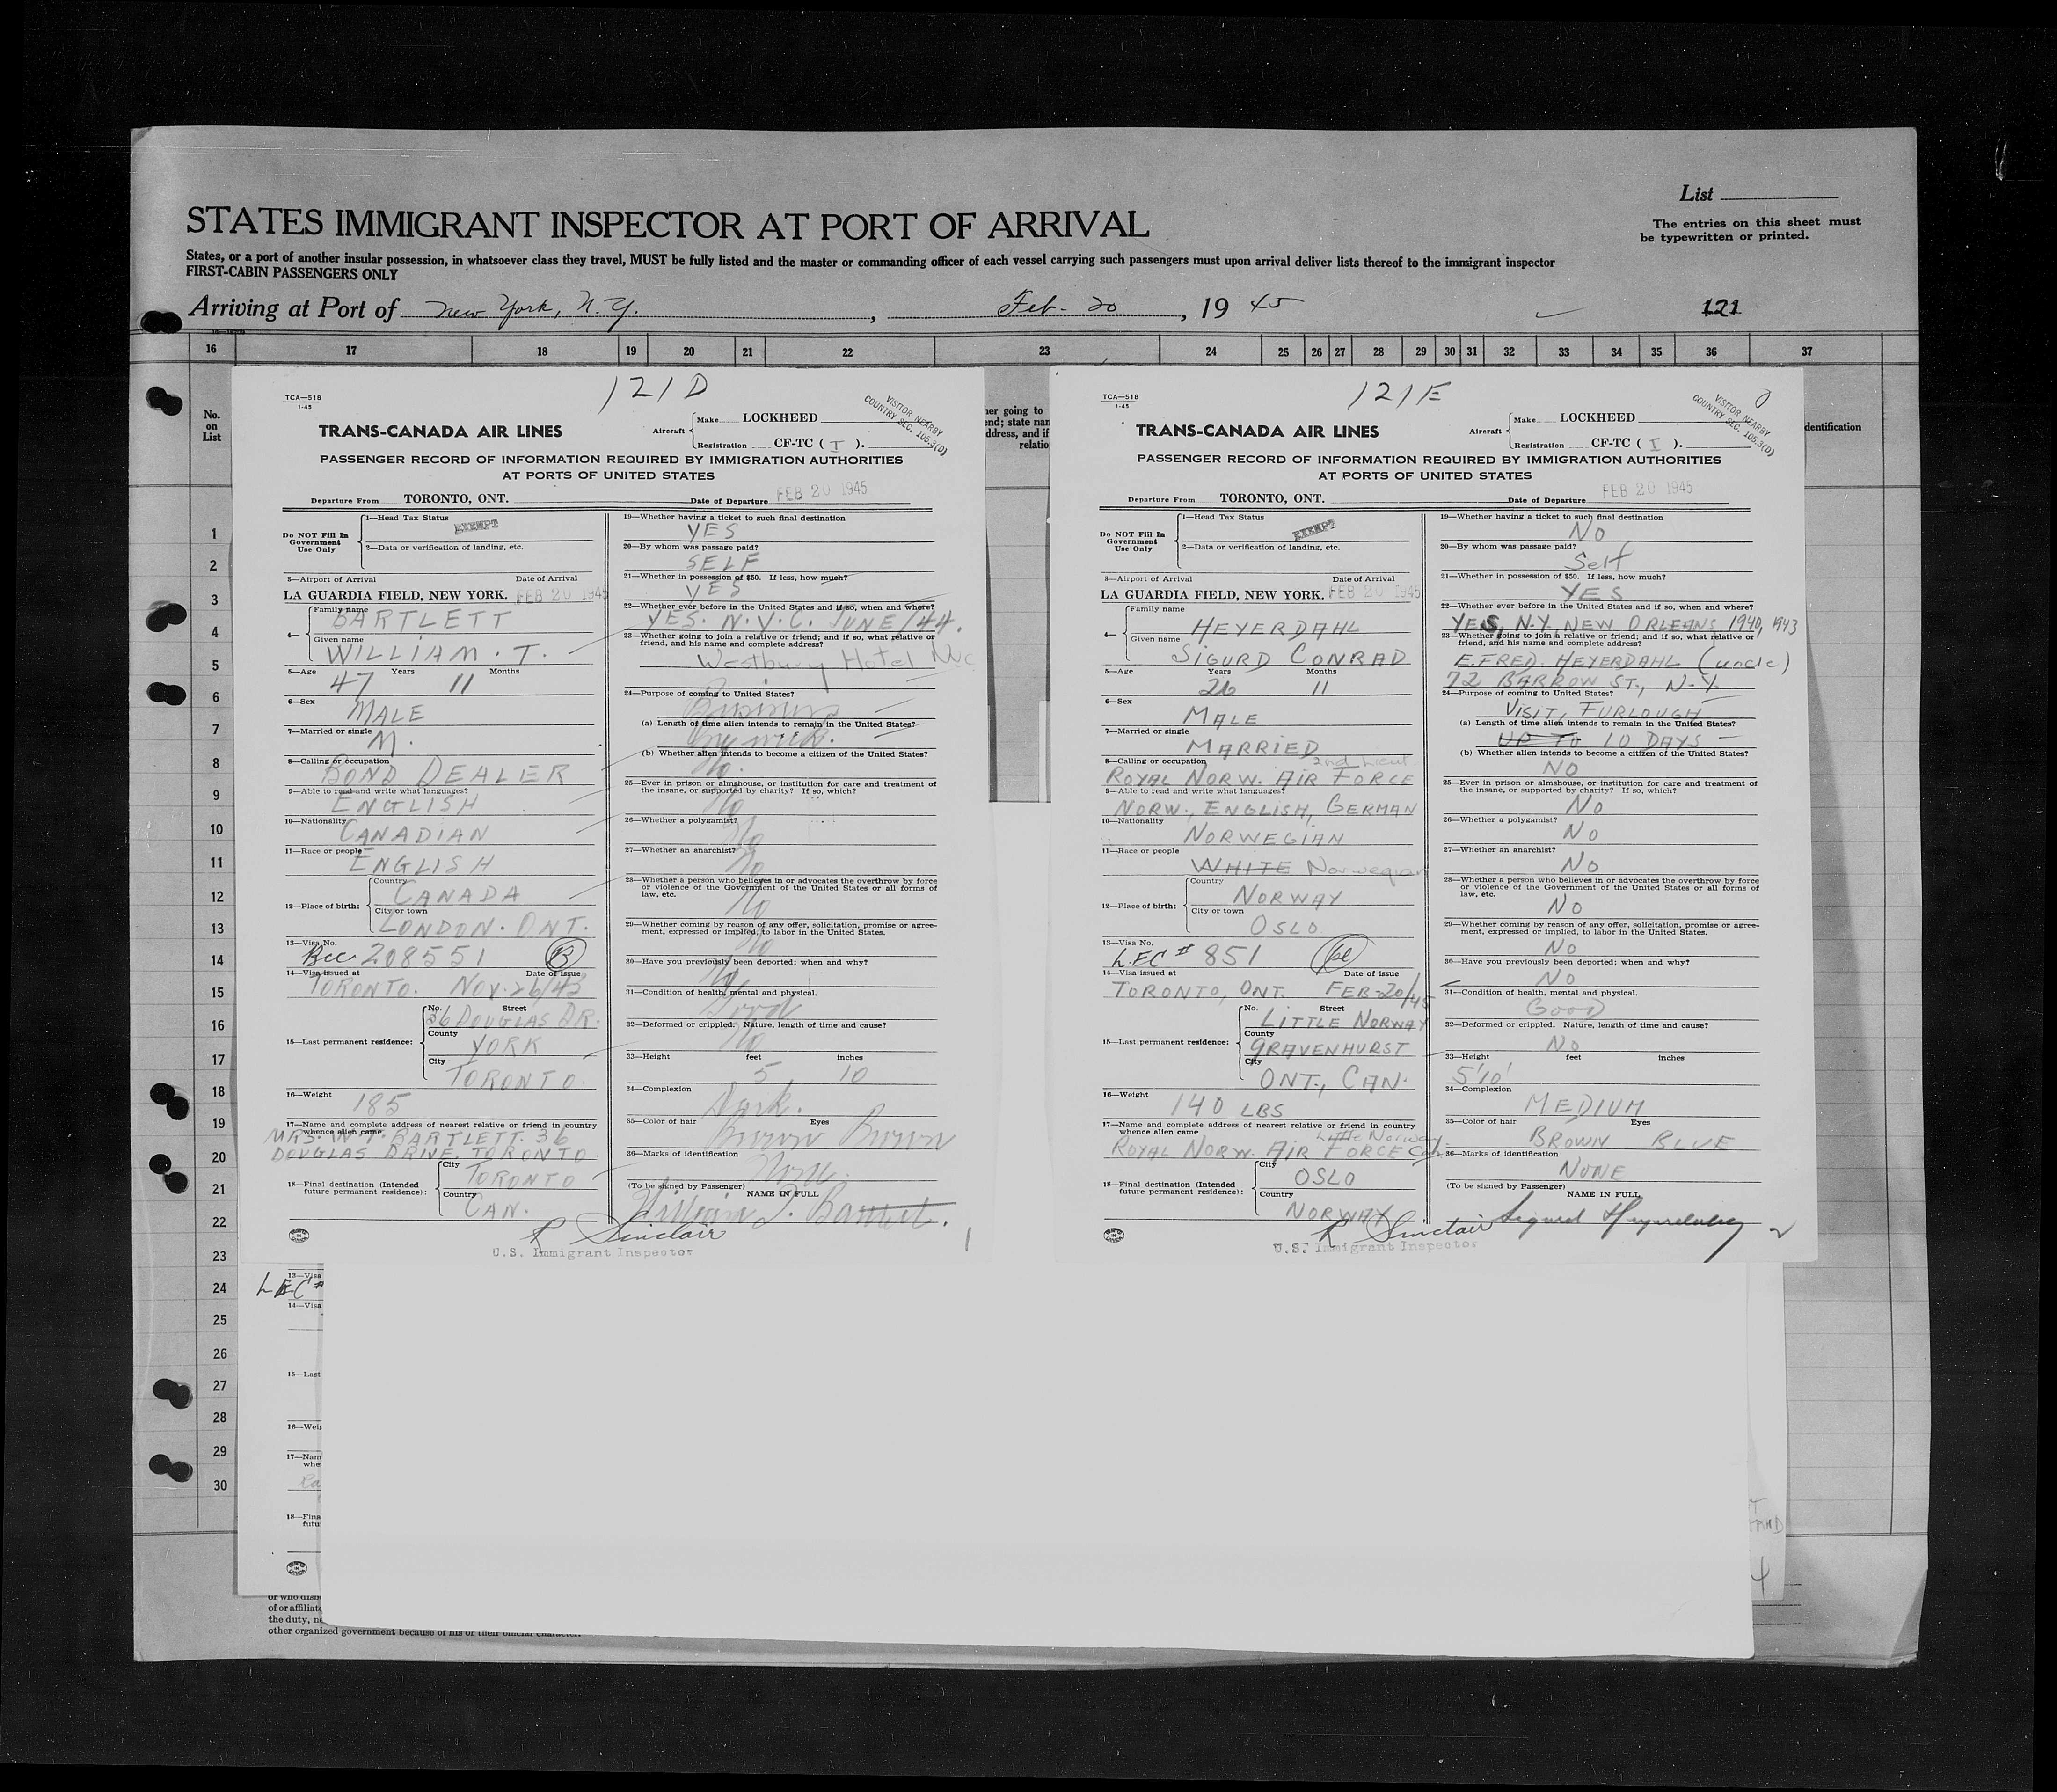 List
STATES IMMIGRANT INSPECTOR AT PORT OF ARRIVAL
The entries on this sheet must
be typewritten or printed.
States, or a port of another insular possession, in whatsoever class they travel, MUST be fully listed and the master or commanding officer of each vessel carrying such passengers must upon arrival deliver lists thereof to the immigrant inspector
FIRST-CABIN PASSENGERS ONLY
Arriving at Port of New York, N.Y., Feb- 20, 19 45
121
16 17 18 19 20 21 22 23 24 25 26 27 28 29 30 31 32 33 34 35 36 37
No.
on
List
1
2
3
4
5
6
7
8
9
10
11
12
13
14
15
16
17
18
19
20
21
22
23
24
25
26
27
28
29
30
121D
TCA—518
1-45
TRANS-CANADA AIR LINES
Aircraft
Make LOCKHEED
Registration CF-TC ( I ).
VISITOR NEARBY
COUNTRY SEC. 105.3(D)
PASSENGER RECORD OF INFORMATION REQUIRED BY IMMIGRATION AUTHORITIES
AT PORTS OF UNITED STATES
Departure From TORONTO, ONT. Date of Departure FEB 20 1945
Do NOT Fill In
Government
Use Only
1—Head Tax Status EXEMPT
2—Data or verification of landing, etc.
3—Airport of Arrival Date of Arrival
LA GUARDIA FIELD, NEW YORK. FEB 20 1945
4—
Family name
BARTLETT
Given name
WILLIAM. T.
5—Age Years Months
47 11
6—Sex
MALE
7—Married or single
M.
8—Calling or occupation
BOND DEALER
9—Able to read and write what languages?
ENGLISH
10—Nationality
CANADIAN
11—Race or people
ENGLISH
12—Place of birth:
Country
CANADA
City or town
LONDON. ONT.
13—Visa No.
Bcc 208551 B
14—Visa issued at Date of issue
TORONTO. NOV. 26/43
15—Last permanent residence:
No. Street
36 DOUGLAS DR.
County
YORK
City
TORONTO
16—Weight
185
17—Name and complete address of nearest relative or friend in country
whence alien came
MRS. W. T. BARTLETT. 36
DOUGLAS DRIVE. TORONTO
18—Final destination (Intended
future permanent residence):
City
TORONTO
Country
CAN.
19—Whether having a ticket to such final destination
YES
20—By whom was passage paid?
SELF
21—Whether in possession of $50. If less, how much?
YES
22—Whether ever before in the United States and if so, when and where?
YES. N.Y.C. JUNE/44.
23—Whether going to join a relative or friend; and if so, what relative or
friend, and his name and complete address?
Westbury Hotel NYC
24—Purpose of coming to United States?
Business
(a) Length of time alien intends to remain in the United States?
One week.
(b) Whether alien intends to become a citizen of the United States?
No.
25—Ever in prison or almshouse, or institution for care and treatment of
the insane, or supported by charity? If so, which?
No
26—Whether a polygamist?
No
27—Whether an anarchist?
No
28—Whether a person who believes in or advocates the overthrow by force
or violence of the Government of the United States or all forms of
law, etc.
No
29—Whether coming by reason of any offer, solicitation, promise or agree-
ment, expressed or implied, to labor in the United States.
No
30—Have you previously been deported; when and why?
No
31—Condition of health, mental and physical.
Good
32—Deformed or crippled. Nature, length of time and cause?
No
33—Height feet inches
5 10
34—Complexion
Dark.
35—Color of hair Eyes
Brown Brown
36—Marks of identification
None.
(To be signed by Passenger) NAME IN FULL
William T. Bartlett.
R Sinclair
U.S. Immigrant Inspector
1
her going to
end; state nam
ddress, and if
relatio
121E
TCA—518
1-45
TRANS-CANADA AIR LINES
Aircraft
Make LOCKHEED
Registration CF-TC ( I ).
VISITOR NEARBY
COUNTRY SEC. 105.3(D)
PASSENGER RECORD OF INFORMATION REQUIRED BY IMMIGRATION AUTHORITIES
AT PORTS OF UNITED STATES
Departure From TORONTO, ONT. Date of Departure FEB 20 1945
Do NOT Fill In
Government
Use Only
1—Head Tax Status EXEMPT
2—Data or verification of landing, etc.
3—Airport of Arrival Date of Arrival
LA GUARDIA FIELD, NEW YORK. FEB 20 1945
4—
Family name
HEYERDAHL
Given name
SIGURD CONRAD
5—Age Years Months
26 11
6—Sex
MALE
7—Married or single
MARRIED
8—Calling or occupation 2nd Lieut
ROYAL NORW. AIR FORCE
9—Able to read and write what languages?
NORW., ENGLISH, GERMAN
10—Nationality
NORWEGIAN
11—Race or people
WHITE Norwegian
12—Place of birth:
Country
NORWAY
City or town
OSLO
13—Visa No.
L.EC # 851
14—Visa issued at Date of issue
TORONTO, ONT. FEB-20/45
15—Last permanent residence:
No. Street
LITTLE NORWAY
County
GRAVENHURST
City
ONT., CAN.
16—Weight
140 LBS
17—Name and complete address of nearest relative or friend in country
whence alien came Little Norway
ROYAL NORW. AIR FORCE Can
18—Final destination (Intended
future permanent residence):
City
OSLO
Country
NORWAY
19—Whether having a ticket to such final destination
NO
20—By whom was passage paid?
Self
21—Whether in possession of $50. If less, how much?
YES
22—Whether ever before in the United States and if so, when and where?
YES, N.Y., NEW ORLEANS 1940, 1943
23—Whether going to join a relative or friend; and if so, what relative or
friend, and his name and complete address?
E. FRED. HEYERDAHL (uncle)
72 BARROW ST., N.Y.
24—Purpose of coming to United States?
VISIT, FURLOUGH
(a) Length of time alien intends to remain in the United States?
UP TO 10 DAYS
(b) Whether alien intends to become a citizen of the United States?
NO
25—Ever in prison or almshouse, or institution for care and treatment of
the insane, or supported by charity? If so, which?
NO
26—Whether a polygamist?
NO
27—Whether an anarchist?
NO
28—Whether a person who believes in or advocates the overthrow by force
or violence of the Government of the United States or all forms of
law, etc.
NO
29—Whether coming by reason of any offer, solicitation, promise or agree-
ment, expressed or implied, to labor in the United States.
NO
30—Have you previously been deported; when and why?
NO
31—Condition of health, mental and physical.
GOOD
32—Deformed or crippled. Nature, length of time and cause?
NO
33—Height feet inches
5'10'
34—Complexion
MEDIUM
35—Color of hair Eyes
BROWN BLUE
36—Marks of identification
NONE
(To be signed by Passenger) NAME IN FULL
Sigurd Heyerdahl
R Sinclair
U.S. Immigrant Inspector
2
dentification
13—Visa
LEC #
14—Visa
15—Last
16—Wei
17—Nam
whe
18—Fina
futu
4
or who disb
of or affiliate
the duty, ne
other organized government because of his or their official character.